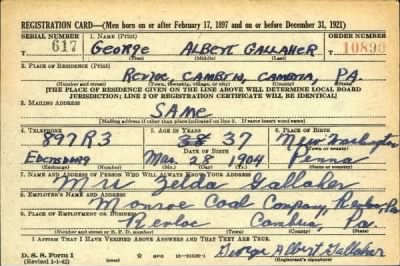 REGISTRATION CARD—(Men born on or after February 17, 1897 and on or before December 31, 1921)
SERIAL NUMBER 1. NAME (Print) ORDER NUMBER
617 GEORGE ALBERT GALLAHER T 10890
(First) (Middle) (Last)
2. PLACE OF RESIDENCE (Print)
REVLOC, CAMBRIA, CAMBRIA, PA.
(Number and street) (Town, township, village, or city) (County) (State)
[THE PLACE OF RESIDENCE GIVEN ON THE LINE ABOVE WILL DETERMINE LOCAL BOARD
JURISDICTION; LINE 2 OF REGISTRATION CERTIFICATE WILL BE IDENTICAL]
3. MAILING ADDRESS
SAME
[Mailing address if other than place indicated on line 2. If same insert word same]
4. TELEPHONE 5. AGE IN YEARS 6. PLACE OF BIRTH
897R3 38 37 New Washington
DATE OF BIRTH (Town or county)
EBENSBURG Mar. 28 1904 Penna
(Exchange) (Number) (Mo.) (Day) (Yr.) (State or country)
7. NAME AND ADDRESS OF PERSON WHO WILL ALWAYS KNOW YOUR ADDRESS
Mrs Zelda Gallaher
8. EMPLOYER'S NAME AND ADDRESS
Monroe Coal Company, Revloc, Pa
9. PLACE OF EMPLOYMENT OR BUSINESS
Revloc Cambria, Pa
(Number and street or R. F. D. number) (Town) (County) (State)
I AFFIRM THAT I HAVE VERIFIED ABOVE ANSWERS AND THAT THEY ARE TRUE.
D. S. S. Form 1
(Revised 1-1-42) (over) GPO 16—21630-1 George Albert Gallaher